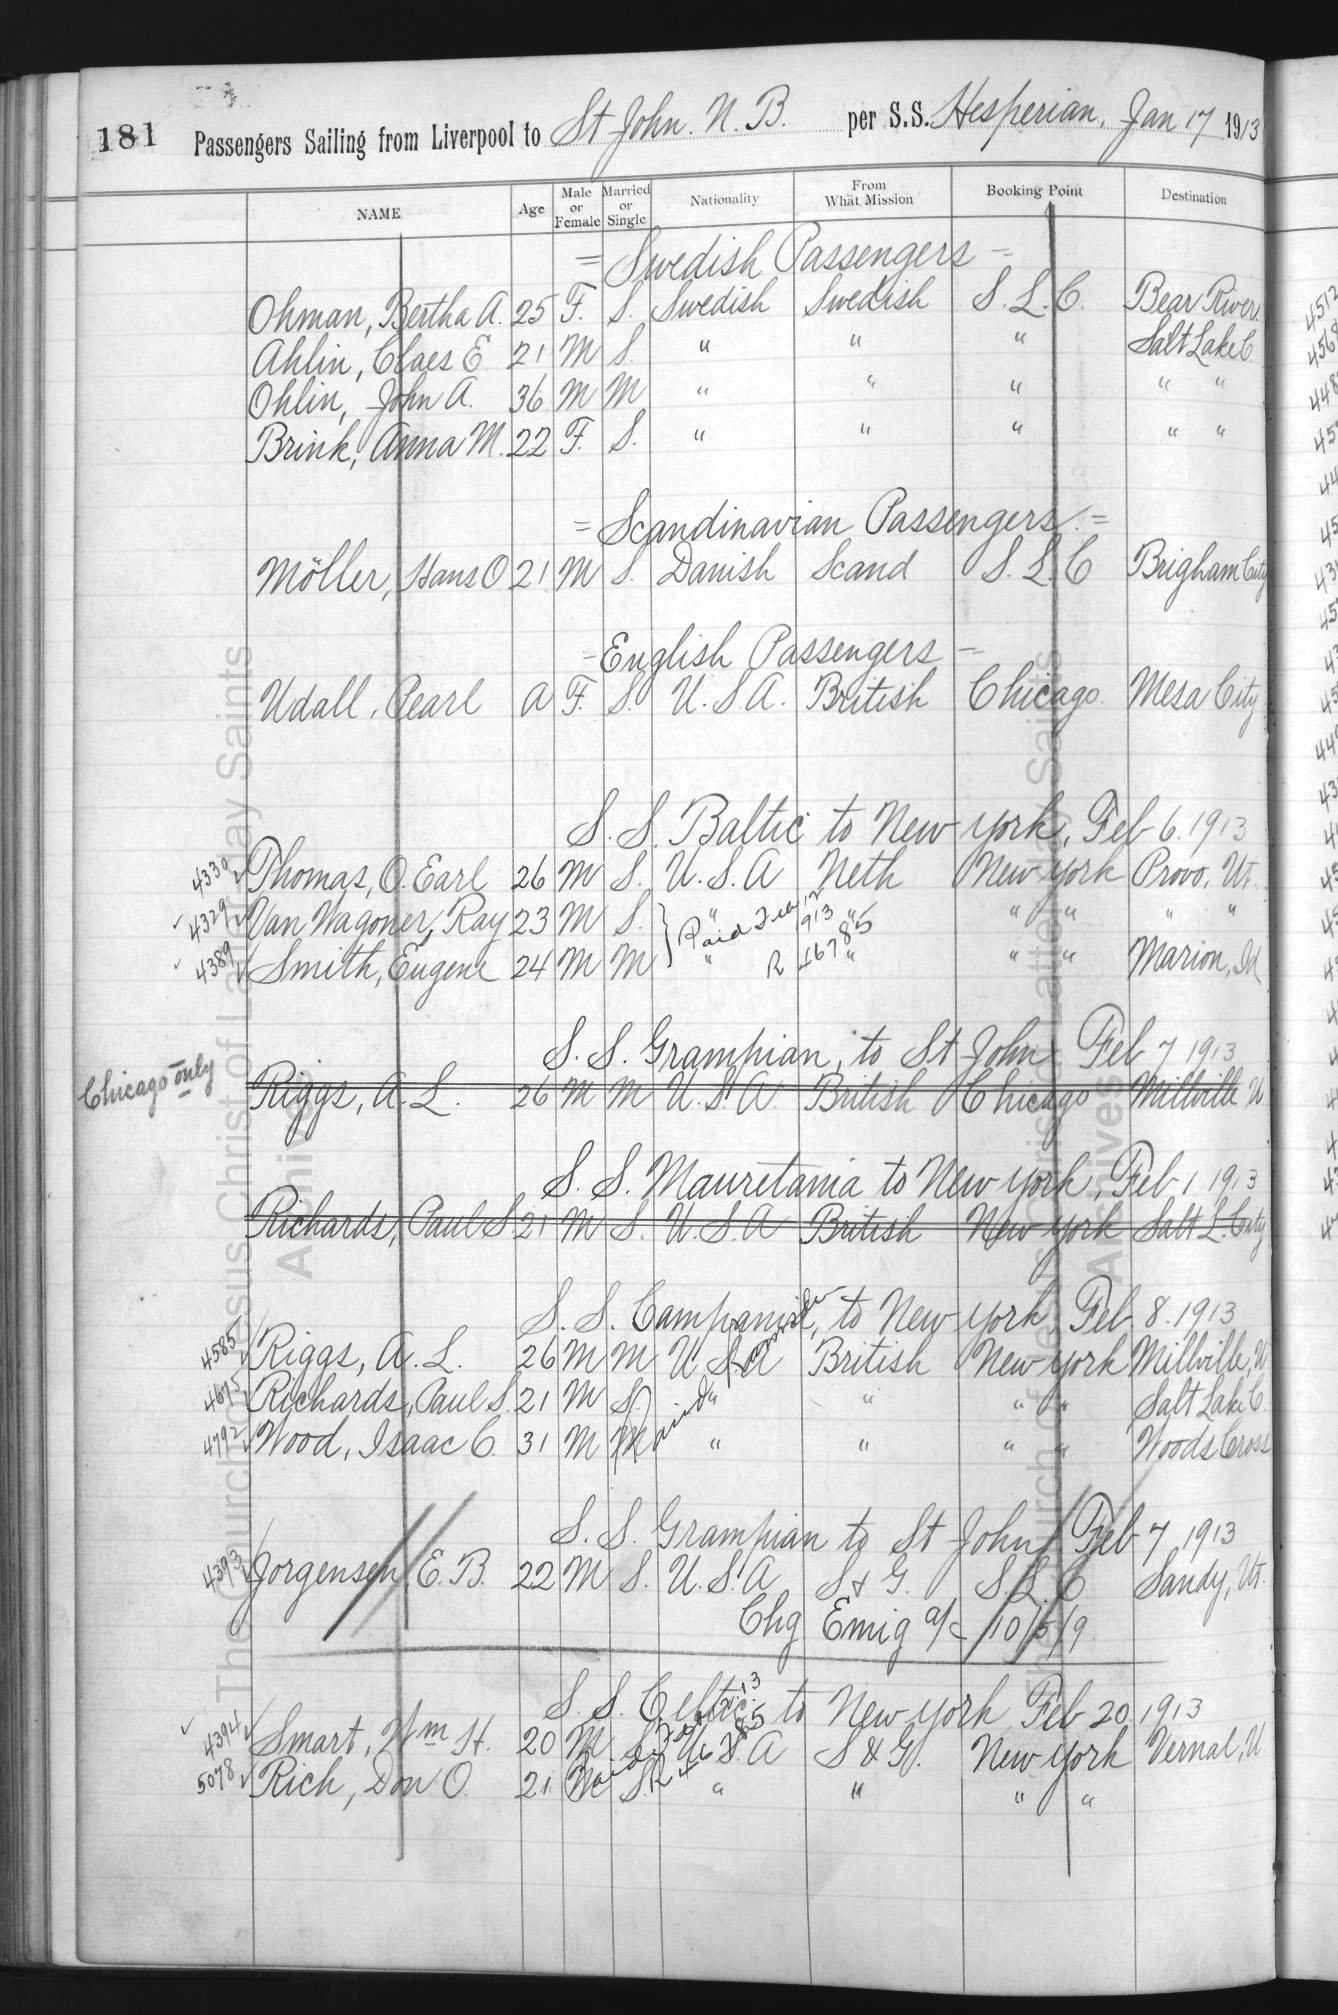 181 Passengers Sailing from Liverpool to St John. N. B. per S.S. Hesperian, Jan 17 1913
NAME Age Male or Female Married or Single Nationality From What Mission Booking Point Destination
= Swedish Passengers =
Ohman, Bertha A. 25 F. S. Swedish Swedish S. L. C. Bear River
Ahlin, Claes E 21 M S. " " " Salt Lake C.
Ohlin, John A. 36 M M " " " " "
Brink, Anna M. 22 F. S. " " " " "
= Scandinavian Passengers. =
Möller, Hans O 21 M S. Danish Scand S. L. C Brigham City
= English Passengers =
Udall, Pearl a F. S. U. S. A. British Chicago. Mesa City
S. S. Baltic to New York, Feb 6. 1913
4330 Thomas, O. Earl 26 M S. U. S. A Neth New York Provo, Ut.
4329 Van Wagoner, Ray 23 M S. " " " " " "
4389 Smith, Eugene 24 M M " " " " Marion, Id
Paid Feb 12 913
R 46785
S. S. Grampian, to St John Feb 7 1913
Chicago only Riggs, A. L. 26 M M U. S. A. British Chicago Millville U
S. S. Mauretania to New York, Feb 1 1913
Richards, Paul S 21 M S. U. S. A British New York Salt L. City
S. S. Campania, to New York, Feb. 8. 1913
4585 Riggs, A. L. 26 M M U S A British New York Millville, U
4675 Richards, Paul S. 21 M S. " " " " Salt Lake C.
4792 Wood, Isaac C. 31 M M " " " " Woods Cross
Paid
S. S. Grampian to St John Feb 7 1913
4393 Jorgensen, E. B. 22 M S. U. S. A S & G. S. L. C Sandy, Ut.
Chg Emig a/c 10/5/9
S. S. Celtic to New York Feb 20. 1913
4394 Smart, Wm H. 20 M S. U. S. A S & G. New York Vernal, U
5078 Rich, Don O. 21 M S. " " " "
The Church of Jesus Christ of Latter-day Saints
Archives
The Church of Jesus Christ of Latter-day Saints
Archives